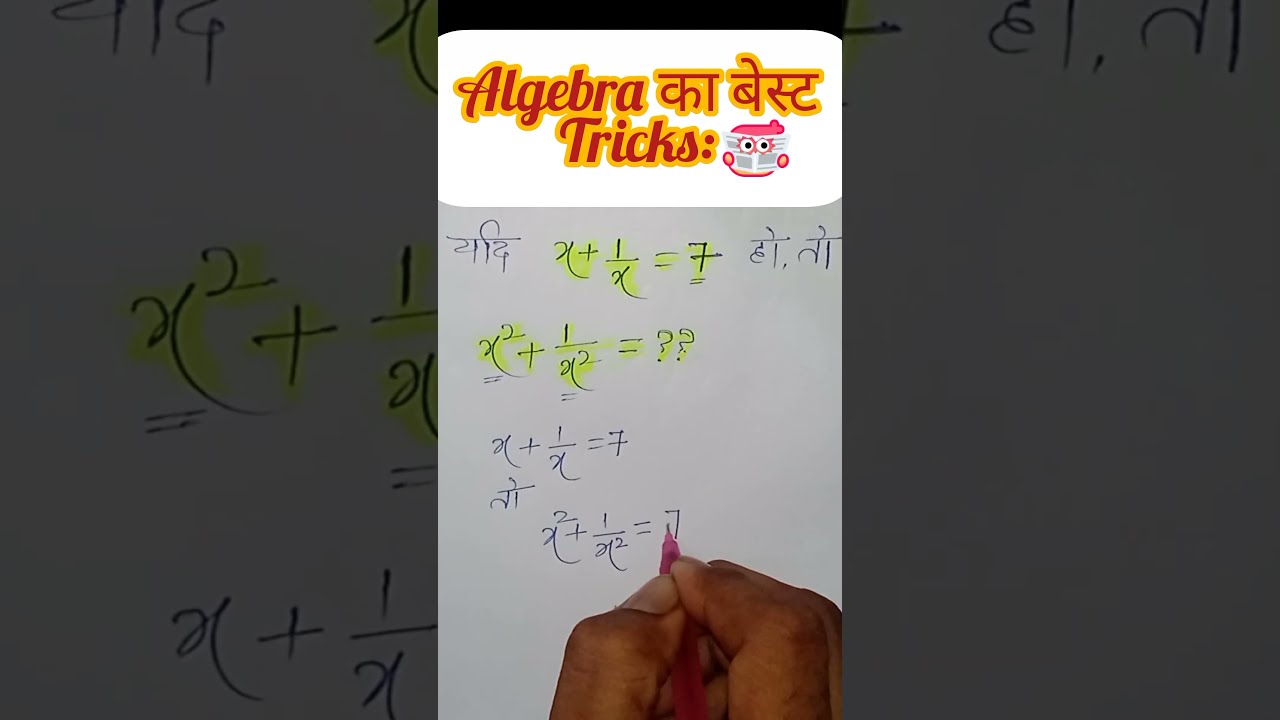 Algebra का बेस्ट
Tricks:
यदि x + 1/x = 7 हो, तो
x² + 1/x² = ??
x + 1/x = 7
तो
x² + 1/x² = 7